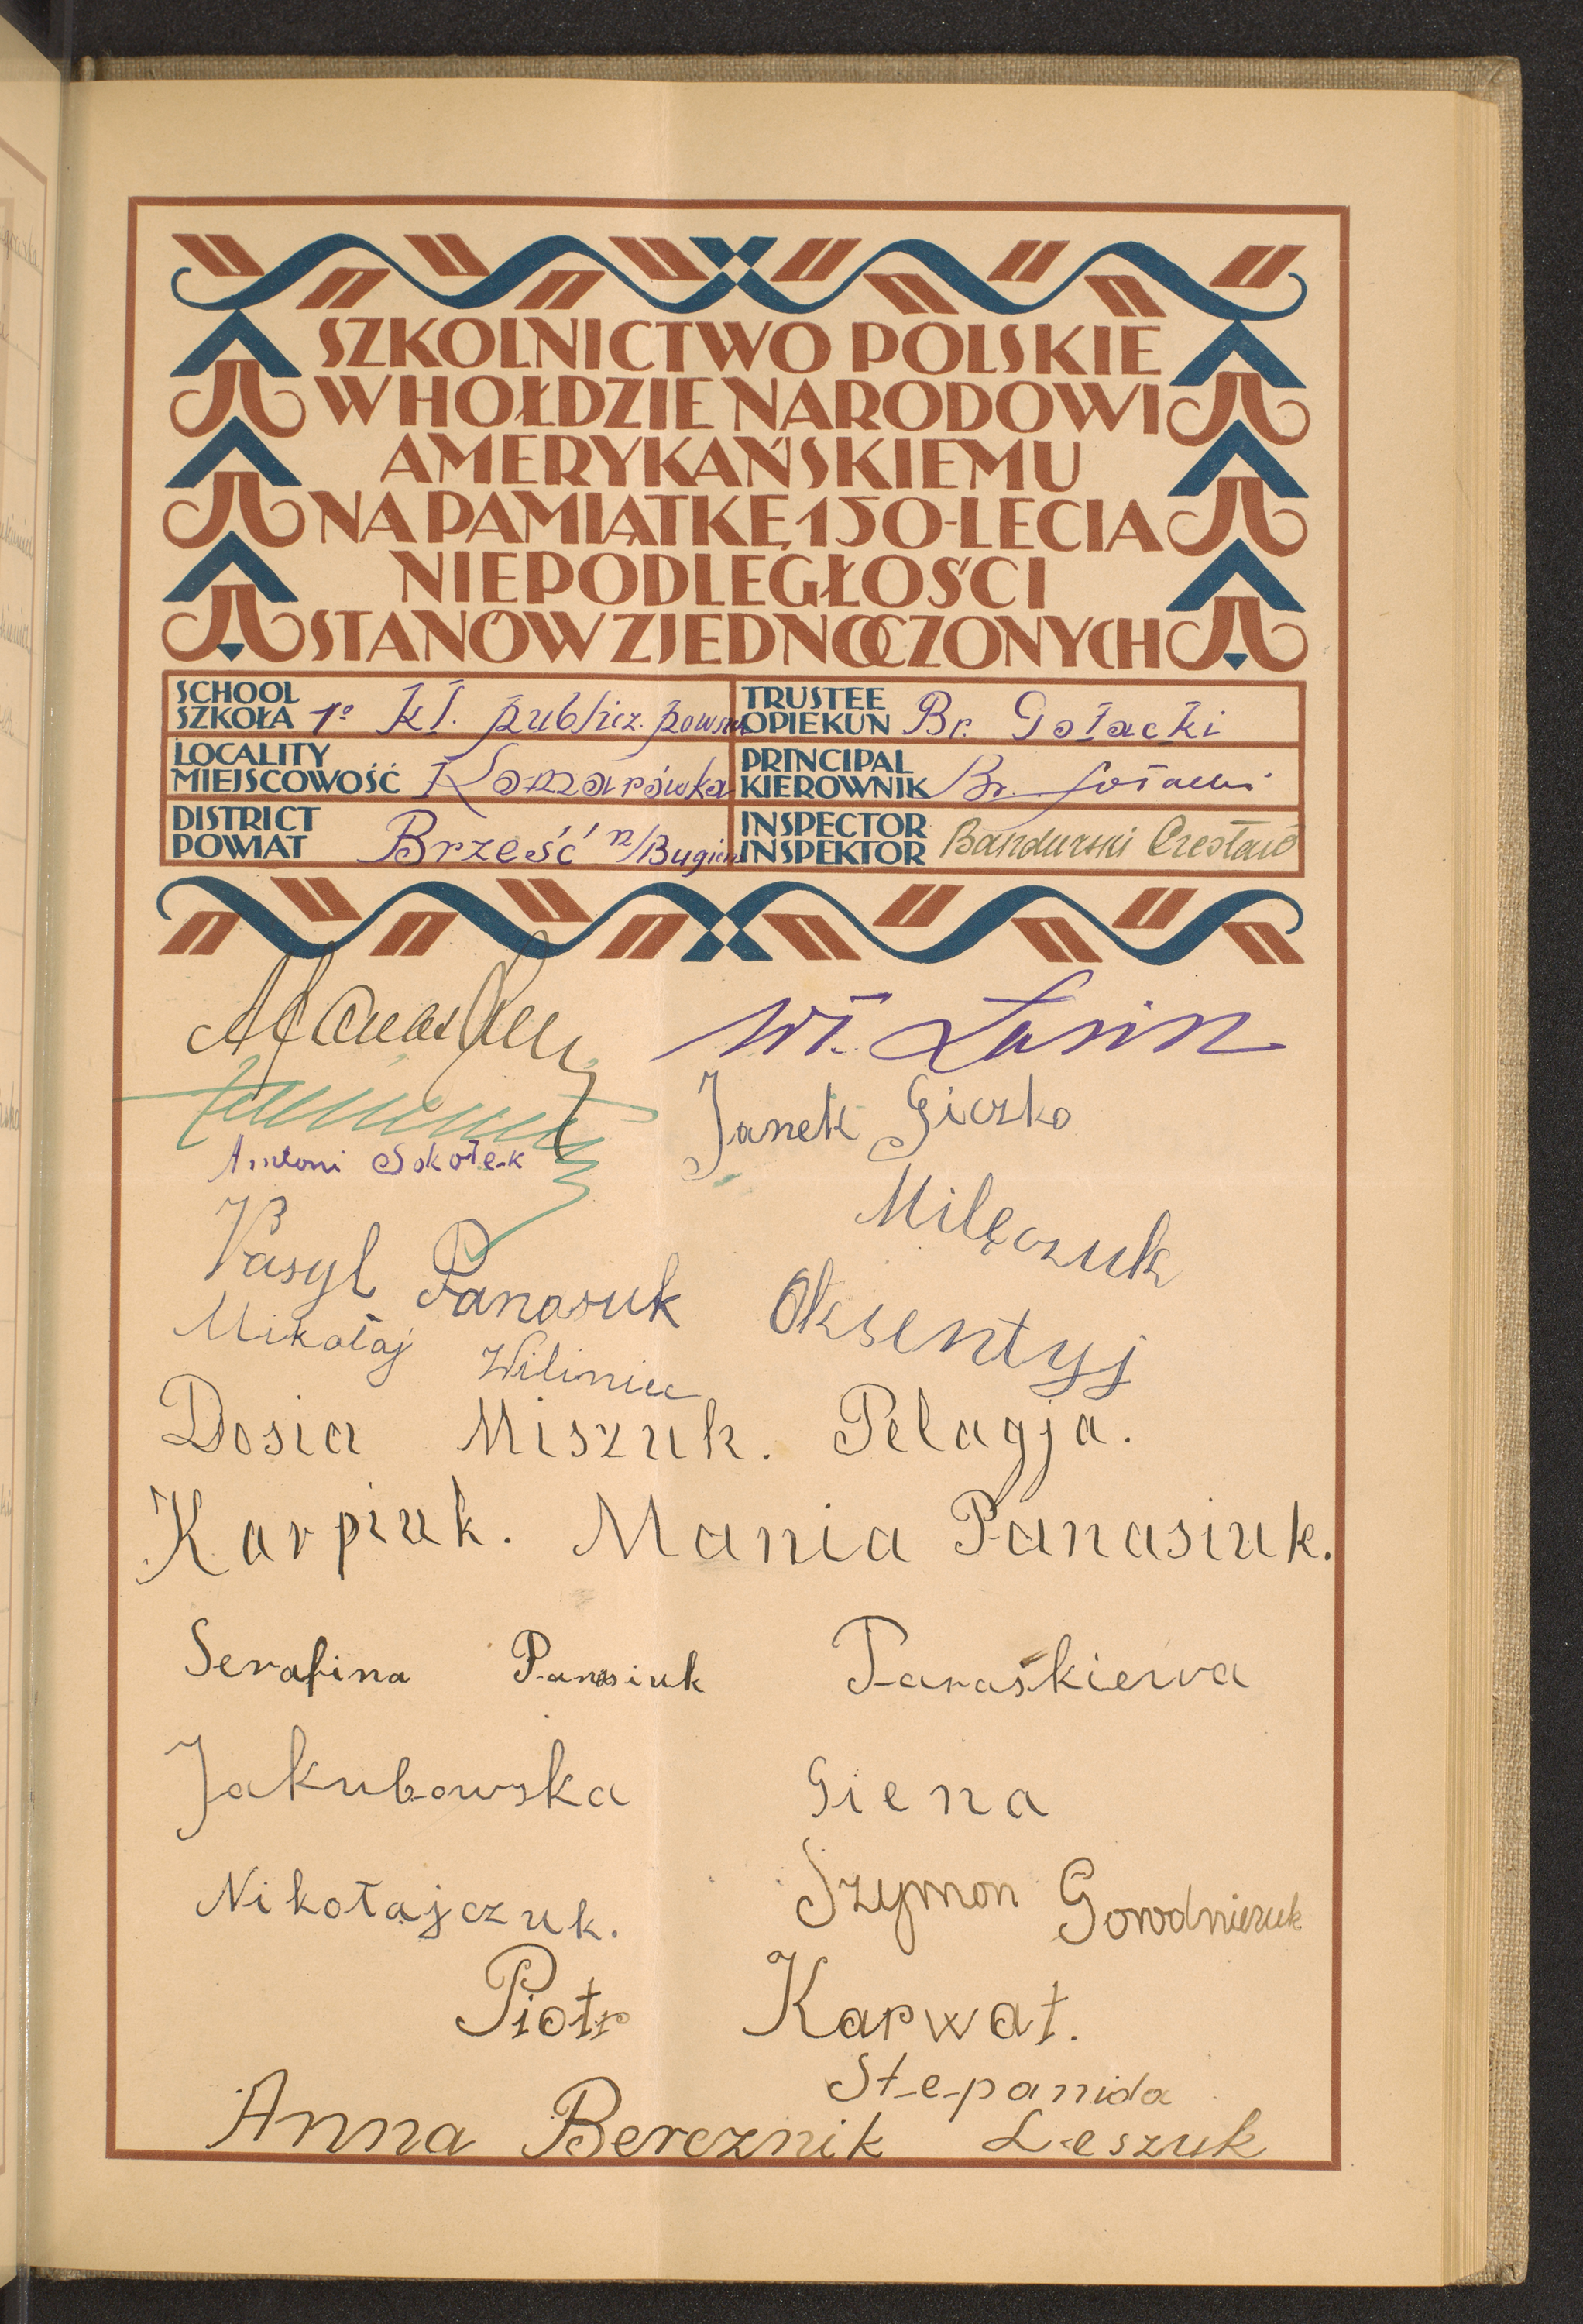 SZKOLNICTWO POLSKIE
W HOŁDZIE NARODOWI
AMERYKAŃSKIEMU
NA PAMIĄTKĘ 150-LECIA
NIEPODLEGŁOŚCI
STANÓW ZJEDNOCZONYCH
SCHOOL
SZKOŁA 1º kl. publicz. powsz
TRUSTEE
OPIEKUN Br. Gołacki
LOCALITY
MIEJSCOWOŚĆ Komarówka
PRINCIPAL
KIEROWNIK Br. Gołacki
DISTRICT
POWIAT Brześć n/Bugiem
INSPECTOR
INSPEKTOR Bandurski Czesław
Wł.
Janek Giczko
Antoni Sokołek
Milęczuk
Vasyl Panasuk Oksentyj
Mikołaj Wiliniec
Dosia Miszuk. Pelagja.
Karpiuk. Mania Panasiuk.
Serafina Panasiuk Paraśkiewa
Jakubowska Giena
Nikołajczuk. Szymon Gorodniczuk
Piotr Karwat.
Stepanida
Anna Bercznik Leszuk